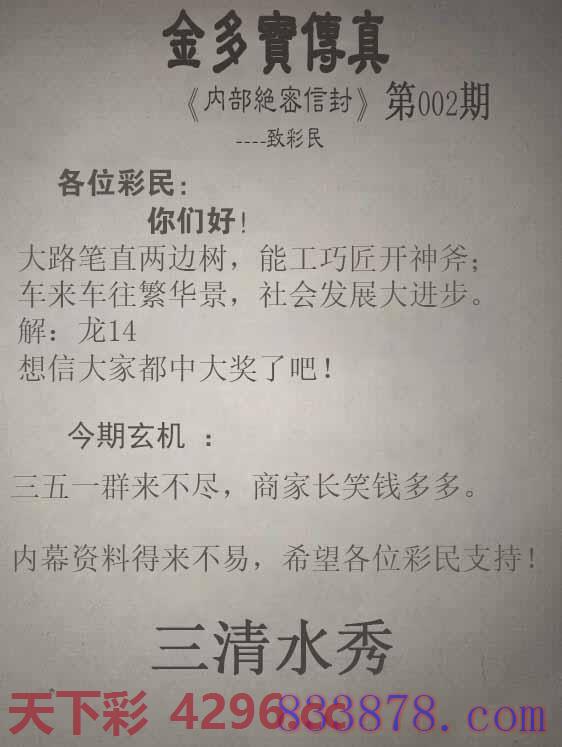 金多寶傳真
《内部絕密信封》第002期
----致彩民
各位彩民:
你们好!
大路笔直两边树，能工巧匠开神斧；
车来车往繁华景，社会发展大进步。
解：龙14
想信大家都中大奖了吧！
今期玄机 ：
三五一群来不尽，商家长笑钱多多。
内幕资料得来不易，希望各位彩民支持！
三清水秀
天下彩 4296.cc
883878.com